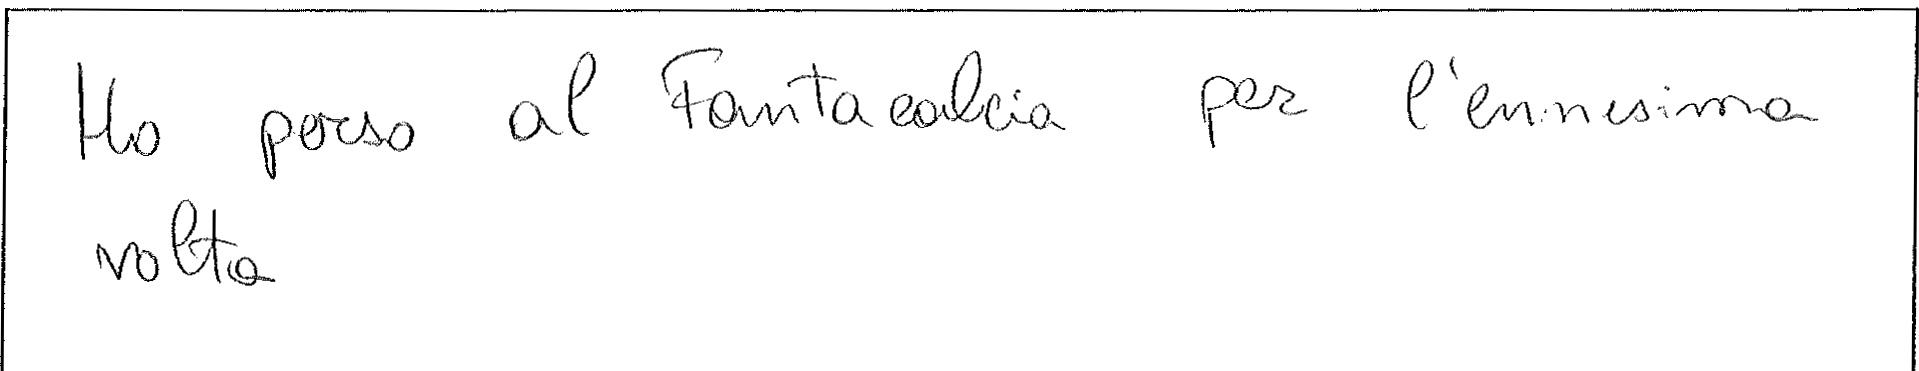 Ho perso al Fantacalcia per l'ennesima
volta